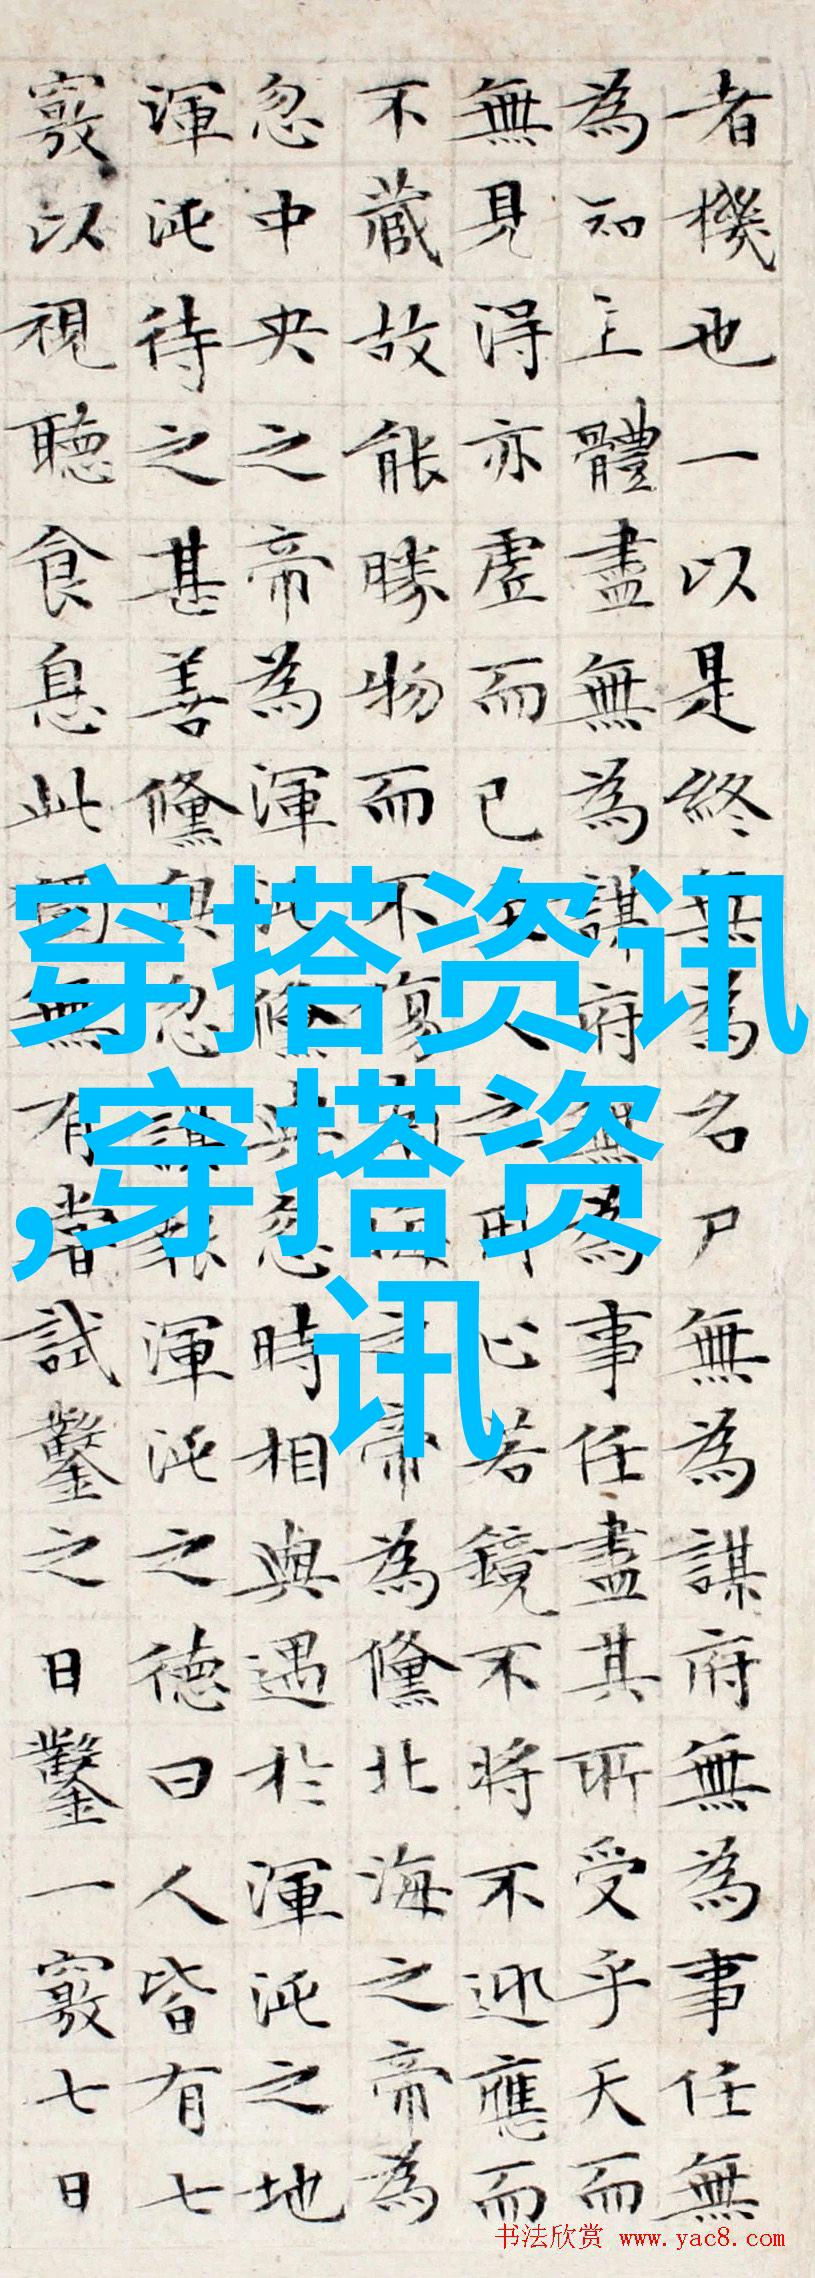 者機也一以是終無為名尸無為謀府無為事任無
為知主體盡無為謀府無為事任盡其所受乎天而
無見得亦虛而已至人之用心若鏡不將不迎應而
不藏故能勝物而不傷南海之帝為儵北海之帝為
忽中央之帝為渾沌儵與忽時相與遇於渾沌之地
渾沌待之甚善儵與忽謀報渾沌之德曰人皆有七
竅以視聽食息此獨無有嘗試鑿之日鑿一竅七日
穿搭资讯
,穿搭资
讯
书法欣赏 www.yac8.com